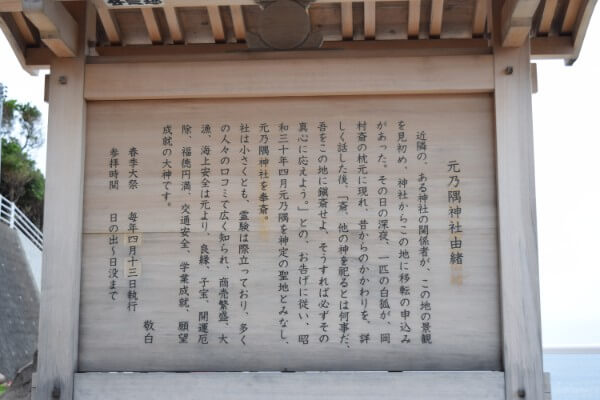 元乃隅神社由緒
近隣の、ある神社の関係者が、この地の景観
を見初め、神社からこの地に移転の申込み
があった。その日の深夜、一匹の白狐が、岡
村斎の枕元に現れ、昔からのかかわりを、詳
しく話した後、「斎、他の神を祀るとは何事だ、
吾をこの地に鎮斎せよ、そうすれば必ずその
真心に応えよう。」との、お告げに従い、昭
和三十年四月元乃隅を神定の聖地とみなし、
元乃隅神社を奉斎。
社は小さくとも、霊験は際立っており、多く
の人々の口コミで広く知られ、商売繁盛、大
漁、海上安全は元より、良縁、子宝、開運厄
除、福徳円満、交通安全、学業成就、願望
成就の大神です。
敬白
春季大祭　毎年四月十三日執行
参拝時間　日の出〜日没まで